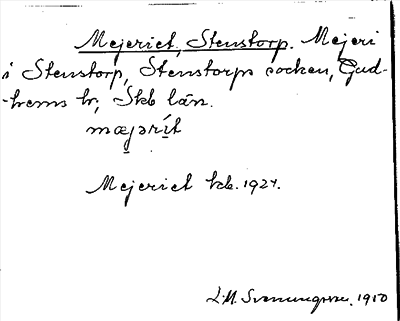 Mejeriet, Stenstorp. Mejeri
i Stenstorp, Stenstorps socken, Gud-
-hems hr, Skb län.
mæjərít
Mejeriet kb. 1927.
1910